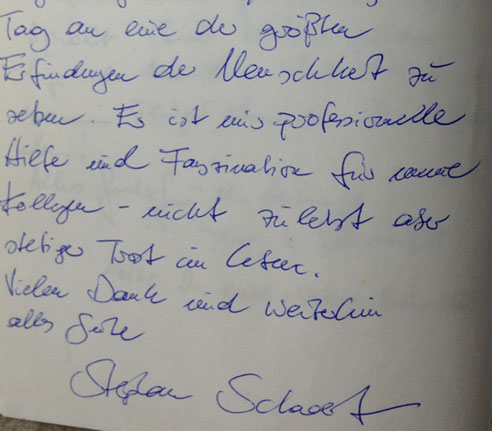 Tag an eine der größten
Erfindungen der Menschheit zu
sehen. Es ist mir professionelle
Hilfe und Faszination für meine
Kollegen - nicht zuletzt aber
stetiger Trost im
Vielen Dank und weiterhin
alles Gute
Stephan